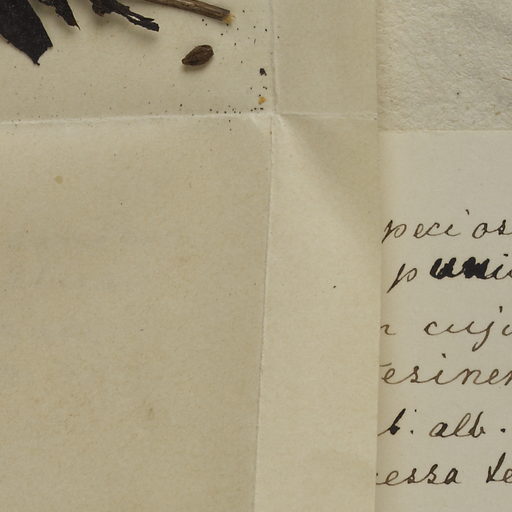 pecios
puni
cuj
esinen
b. alb.
essa te